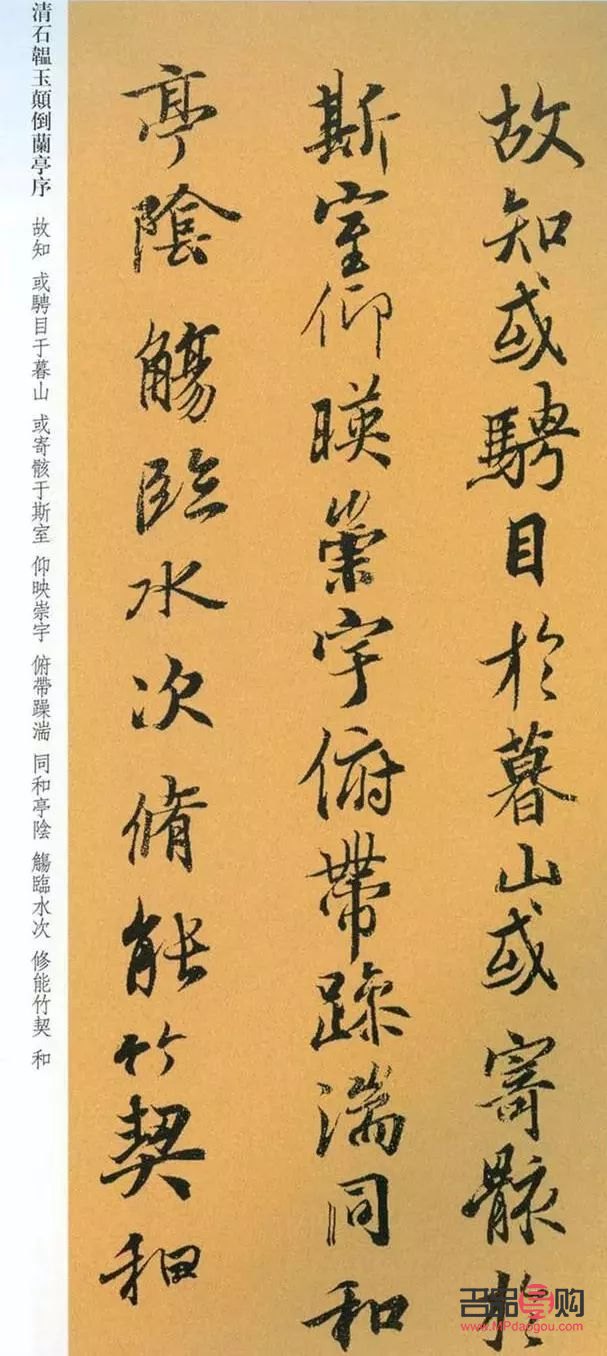 故知或騁目於暮山或寄骸於
斯室仰暎崇宇俯帶躁湍同和
亭陰觴臨水次脩能竹契和
清石韞玉顛倒蘭亭序 故知 或騁目于暮山 或寄骸于斯室 仰映崇宇 俯帶躁湍 同和亭陰 觴臨水次 修能竹契 和
名品导购
www.MPdaogou.com